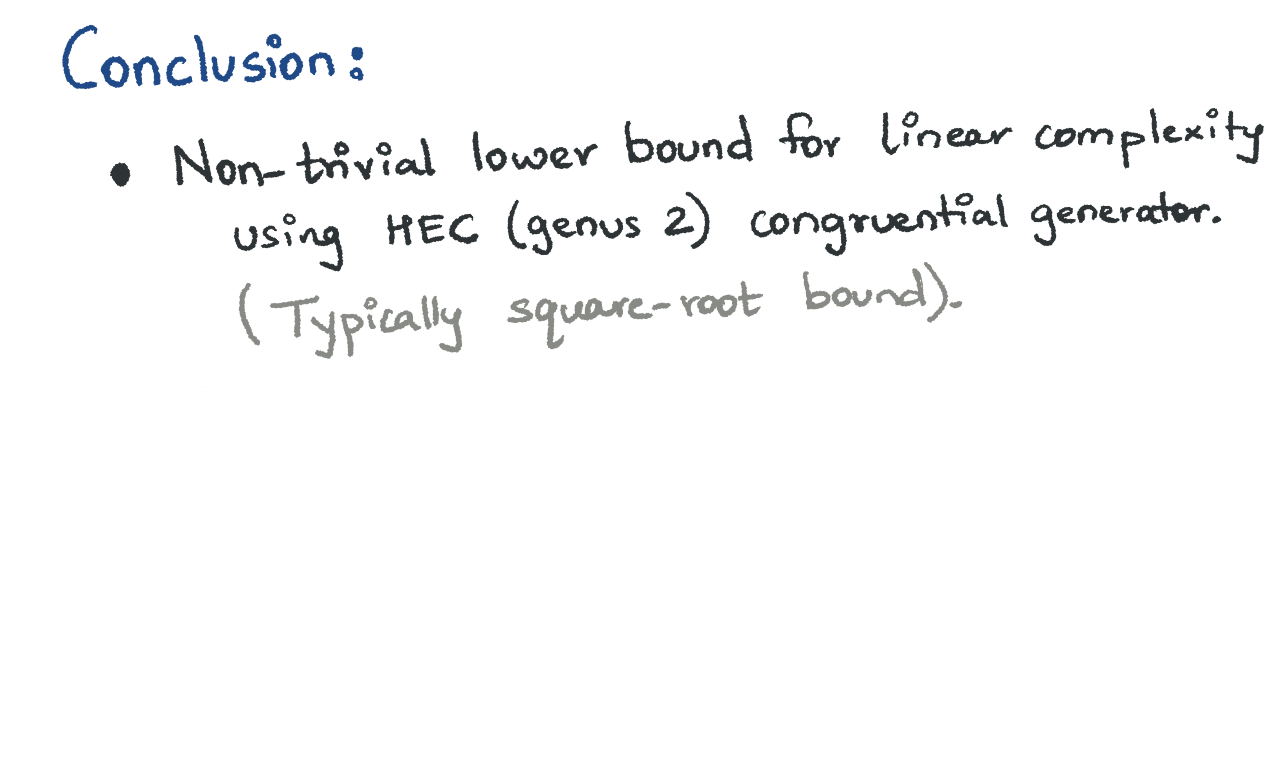 Conclusion:
• Non-trivial lower bound for linear complexity
using HEC (genus 2) congruential generator.
(Typically square-root bound).